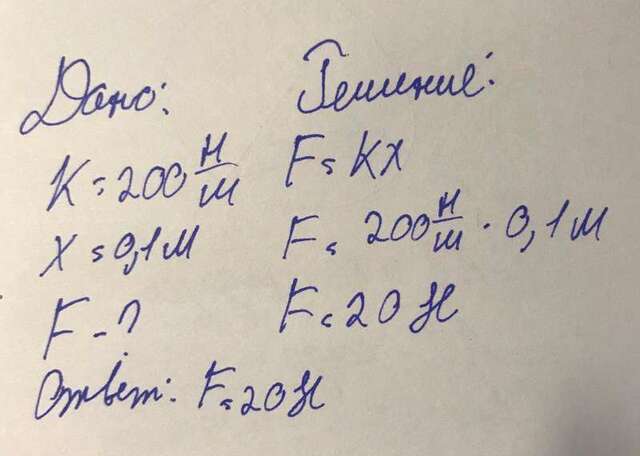 Дано: Решение:
K = 200 Н/м F = KX
X = 0,1 м F = 200 Н/м · 0,1 м
F - ? F = 20 Н
Ответ: F = 20 Н